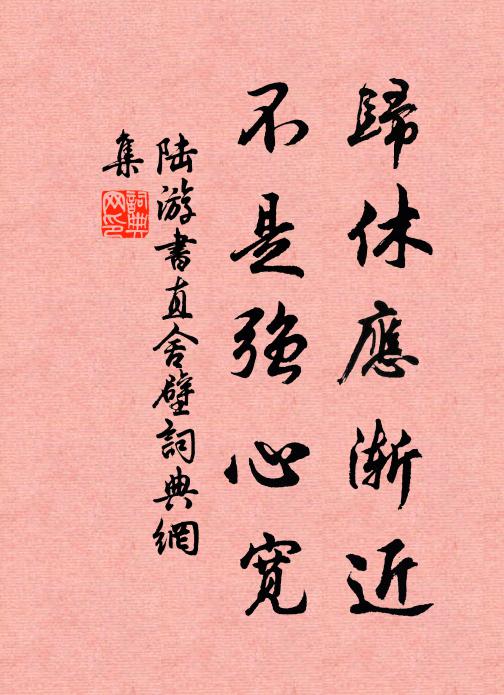 歸休應漸近
不是強心寬
陸游書直舍壁詞典網
集
詞典
网印